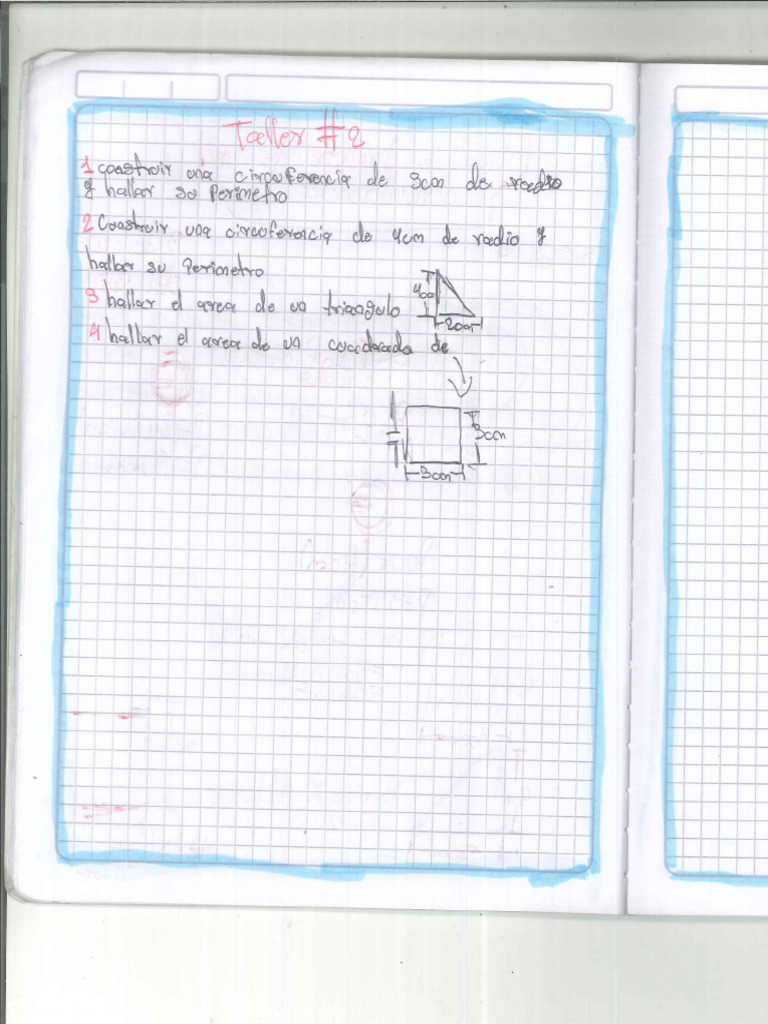 Taller #2
1 construir una circuferencia de 3cm de radio
y hallar su perimetro
2 Construir una circuferencia de 4cm de radio y
hallar su perimetro
3 hallar el area de un triangulo
4cm
2cm
4 hallar el area de un cuadrado de
3cm
3cm